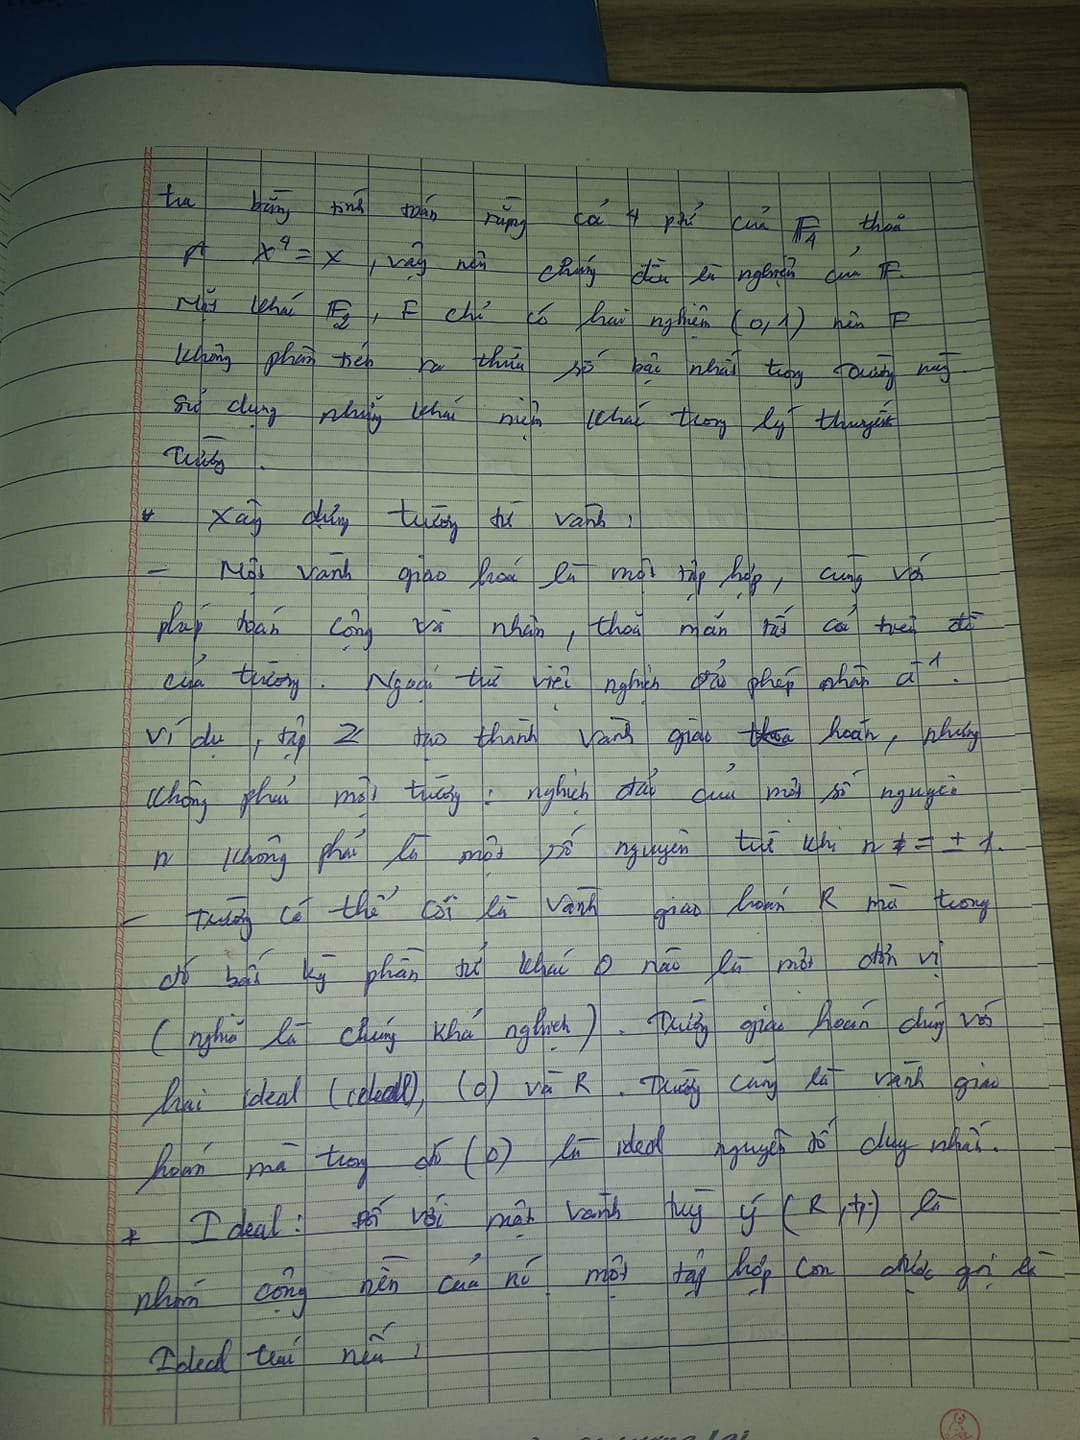 tra bằng tính toán rằng cả 4 phí của F₄ thoả
pt X⁴ = X, vậy nên chúng đều là nghiệm của F.
Mặt khác F₂, F chỉ có hai nghiệm (0,1) nên F
không phân tích ra thừa số bậc nhất trong trường này.
Sử dụng những khái niệm khác trong lý thuyết
Trường.
* Xây dựng trường từ vành:
- Một vành giao hoán là một tập hợp, cùng với
phép toán cộng và nhân, thoả mãn tất cả tiên đề
của trường. Ngoại trừ việc nghịch đảo phép nhân a⁻¹.
Ví dụ, tập Z tạo thành vành giao hoán, nhưng
không phải một trường: nghịch đảo của một số nguyên
n không phải là một số nguyên trừ khi n = ± 1.
- Trường có thể coi là vành giao hoán R mà trong
đó bất kỳ phần tử khác 0 nào là một đơn vị
(nghĩa là chúng khả nghịch). Trường giao hoán đúng với
hai ideal, (0) và R. Trường cũng là vành giao
hoán mà trong đó (0) là ideal nguyên tố duy nhất.
* Ideal: Đối với một vành tuỳ ý (R,+,·) là
nhóm cộng nền của nó một tập hợp con được gọi là
Ideal trái nếu: